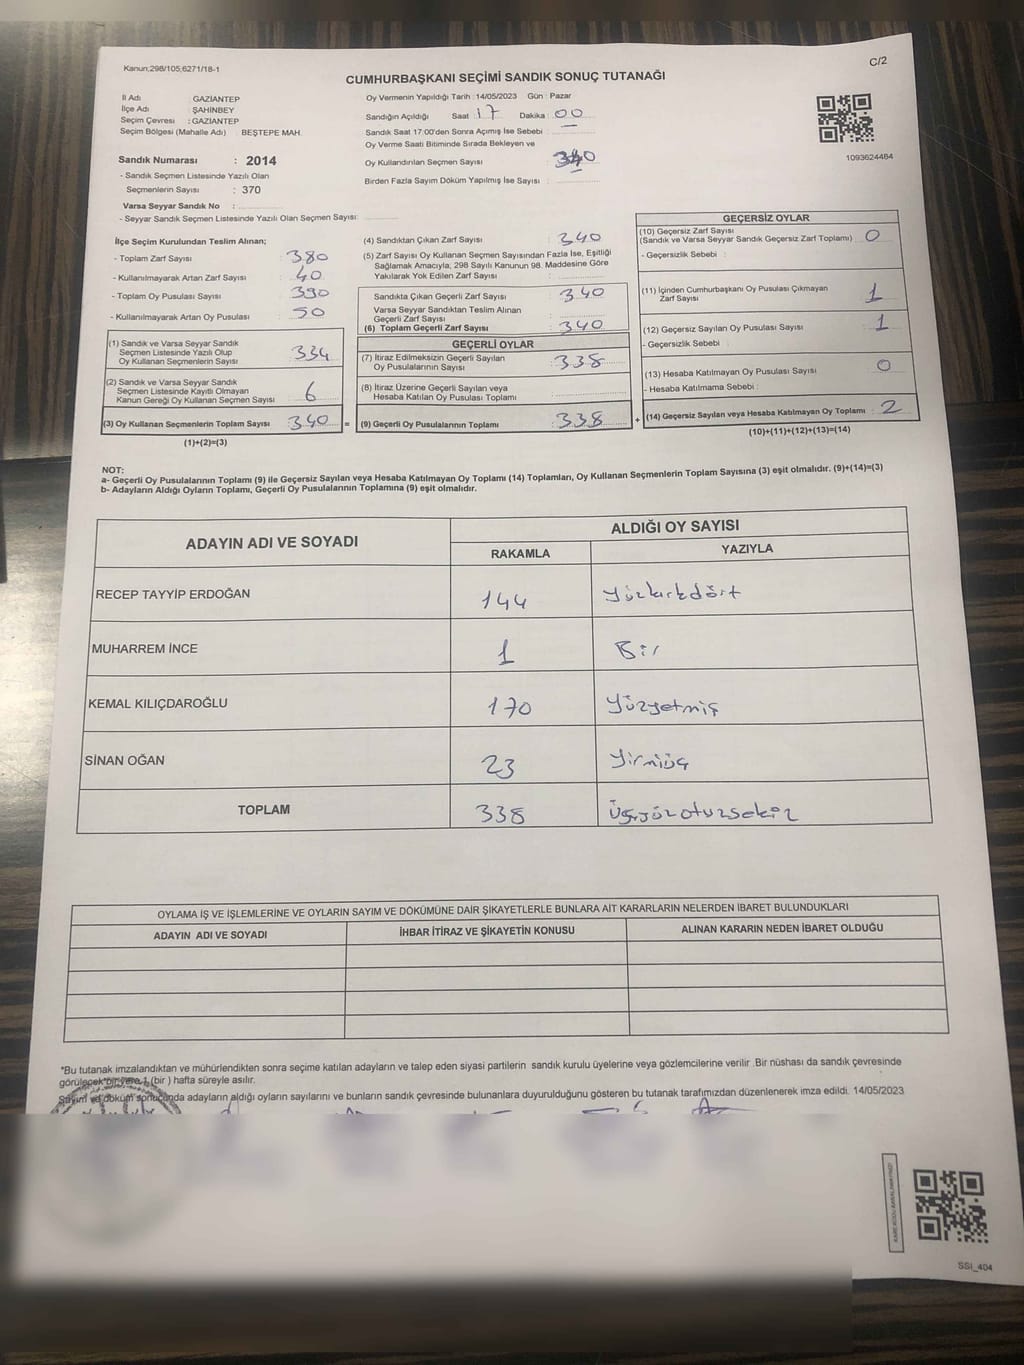 Kanun;298/105,6271/18-1
C/2
CUMHURBAŞKANI SEÇİMİ SANDIK SONUÇ TUTANAĞI
İl Adı GAZİANTEP
İlçe Adı : ŞAHİNBEY
Seçim Çevresi : GAZİANTEP
Seçim Bölgesi (Mahalle Adı) BEŞTEPE MAH.
Sandık Numarası : 2014
- Sandık Seçmen Listesinde Yazılı Olan
Seçmenlerin Sayısı : 370
Varsa Seyyar Sandık No :
- Seyyar Sandık Seçmen Listesinde Yazılı Olan Seçmen Sayısı:
Oy Vermenin Yapıldığı Tarih : 14/05/2023 Gün : Pazar
Sandığın Açıldığı Saat : 17 Dakika : 00
Sandık Saat 17:00'den Sonra Açımış İse Sebebi :
Oy Verme Saati Bitiminde Sırada Bekleyen ve
Oy Kullandırılan Seçmen Sayısı : 340
Birden Fazla Sayım Döküm Yapılmış İse Sayısı :
1093624484
İlçe Seçim Kurulundan Teslim Alınan;
- Toplam Zarf Sayısı : 380
- Kullanılmayarak Artan Zarf Sayısı : 40
- Toplam Oy Pusulası Sayısı : 390
- Kullanılmayarak Artan Oy Pusulası : 50
(1) Sandık ve Varsa Seyyar Sandık
Seçmen Listesinde Yazılı Olup
Oy Kullanan Seçmenlerin Sayısı : 334
(2) Sandık ve Varsa Seyyar Sandık
Seçmen Listesinde Kayıtlı Olmayan
Kanun Gereği Oy Kullanan Seçmen Sayısı : 6
(3) Oy Kullanan Seçmenlerin Toplam Sayısı : 340 =
(1)+(2)=(3)
(4) Sandıktan Çıkan Zarf Sayısı : 340
(5) Zarf Sayısı Oy Kullanan Seçmen Sayısından Fazla İse, Eşitliği
Sağlamak Amacıyla, 298 Sayılı Kanunun 98. Maddesine Göre
Yakılarak Yok Edilen Zarf Sayısı :
Sandıkta Çıkan Geçerli Zarf Sayısı : 340
Varsa Seyyar Sandıktan Teslim Alınan
Geçerli Zarf Sayısı :
(6) Toplam Geçerli Zarf Sayısı : 340
GEÇERLİ OYLAR
(7) İtiraz Edilmeksizin Geçerli Sayılan
Oy Pusulalarının Sayısı : 338
(8) İtiraz Üzerine Geçerli Sayılan veya
Hesaba Katılan Oy Pusulası Toplamı :
(9) Geçerli Oy Pusulalarının Toplamı : 338 +
GEÇERSİZ OYLAR
(10) Geçersiz Zarf Sayısı
(Sandık ve Varsa Seyyar Sandık Geçersiz Zarf Toplamı) : 0
- Geçersizlik Sebebi :
(11) İçinden Cumhurbaşkanı Oy Pusulası Çıkmayan
Zarf Sayısı : 1
(12) Geçersiz Sayılan Oy Pusulası Sayısı : 1
- Geçersizlik Sebebi :
(13) Hesaba Katılmayan Oy Pusulası Sayısı : 0
- Hesaba Katılmama Sebebi :
(14) Geçersiz Sayılan veya Hesaba Katılmayan Oy Toplamı : 2
(10)+(11)+(12)+(13)=(14)
NOT:
a- Geçerli Oy Pusulalarının Toplamı (9) ile Geçersiz Sayılan veya Hesaba Katılmayan Oy Toplamı (14) Toplamları, Oy Kullanan Seçmenlerin Toplam Sayısına (3) eşit olmalıdır. (9)+(14)=(3)
b- Adayların Aldığı Oyların Toplamı, Geçerli Oy Pusulalarının Toplamına (9) eşit olmalıdır.
ADAYIN ADI VE SOYADI
ALDIĞI OY SAYISI
RAKAMLA YAZIYLA
RECEP TAYYİP ERDOĞAN 144 Yüzkırkdört
MUHARREM İNCE 1 Bir
KEMAL KILIÇDAROĞLU 170 Yüzyetmiş
SİNAN OĞAN 23 Yirmiüç
TOPLAM 338 Üçyüzotuzsekiz
OYLAMA İŞ VE İŞLEMLERİNE VE OYLARIN SAYIM VE DÖKÜMÜNE DAİR ŞİKAYETLERLE BUNLARA AİT KARARLARIN NELERDEN İBARET BULUNDUKLARI
ADAYIN ADI VE SOYADI İHBAR İTİRAZ VE ŞİKAYETİN KONUSU ALINAN KARARIN NEDEN İBARET OLDUĞU
*Bu tutanak imzalandıktan ve mühürlendikten sonra seçime katılan adayların ve talep eden siyasi partilerin sandık kurulu üyelerine veya gözlemcilerine verilir .Bir nüshası da sandık çevresinde
görülecek bir yere 1 (bir ) hafta süreyle asılır.
Sayım ve döküm sonucunda adayların aldığı oyların sayılarını ve bunların sandık çevresinde bulunanlara duyurulduğunu gösteren bu tutanak tarafımızdan düzenlenerek imza edildi. 14/05/2023
SSİ_404